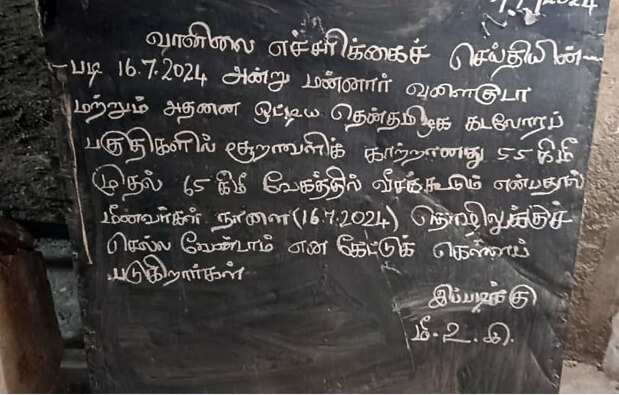 வானிலை எச்சரிக்கைச் செய்தியின்
படி 16.7.2024 அன்று மன்னார் வளைகுடா
மற்றும் அதனை ஒட்டிய தென்தமிழக கடலோரப்
பகுதிகளில் சூறாவளிக் காற்றானது 55 கிமீ
முதல் 65 கிமீ வேகத்தில் வீசக்கூடும் என்பதால்
மீனவர்கள் நாளை (16.7.2024) தொழிலுக்குச்
செல்ல வேண்டாம் என கேட்டுக் கொள்ளப்
படுகிறார்கள்
இப்படிக்கு
மீ.உ.கி.